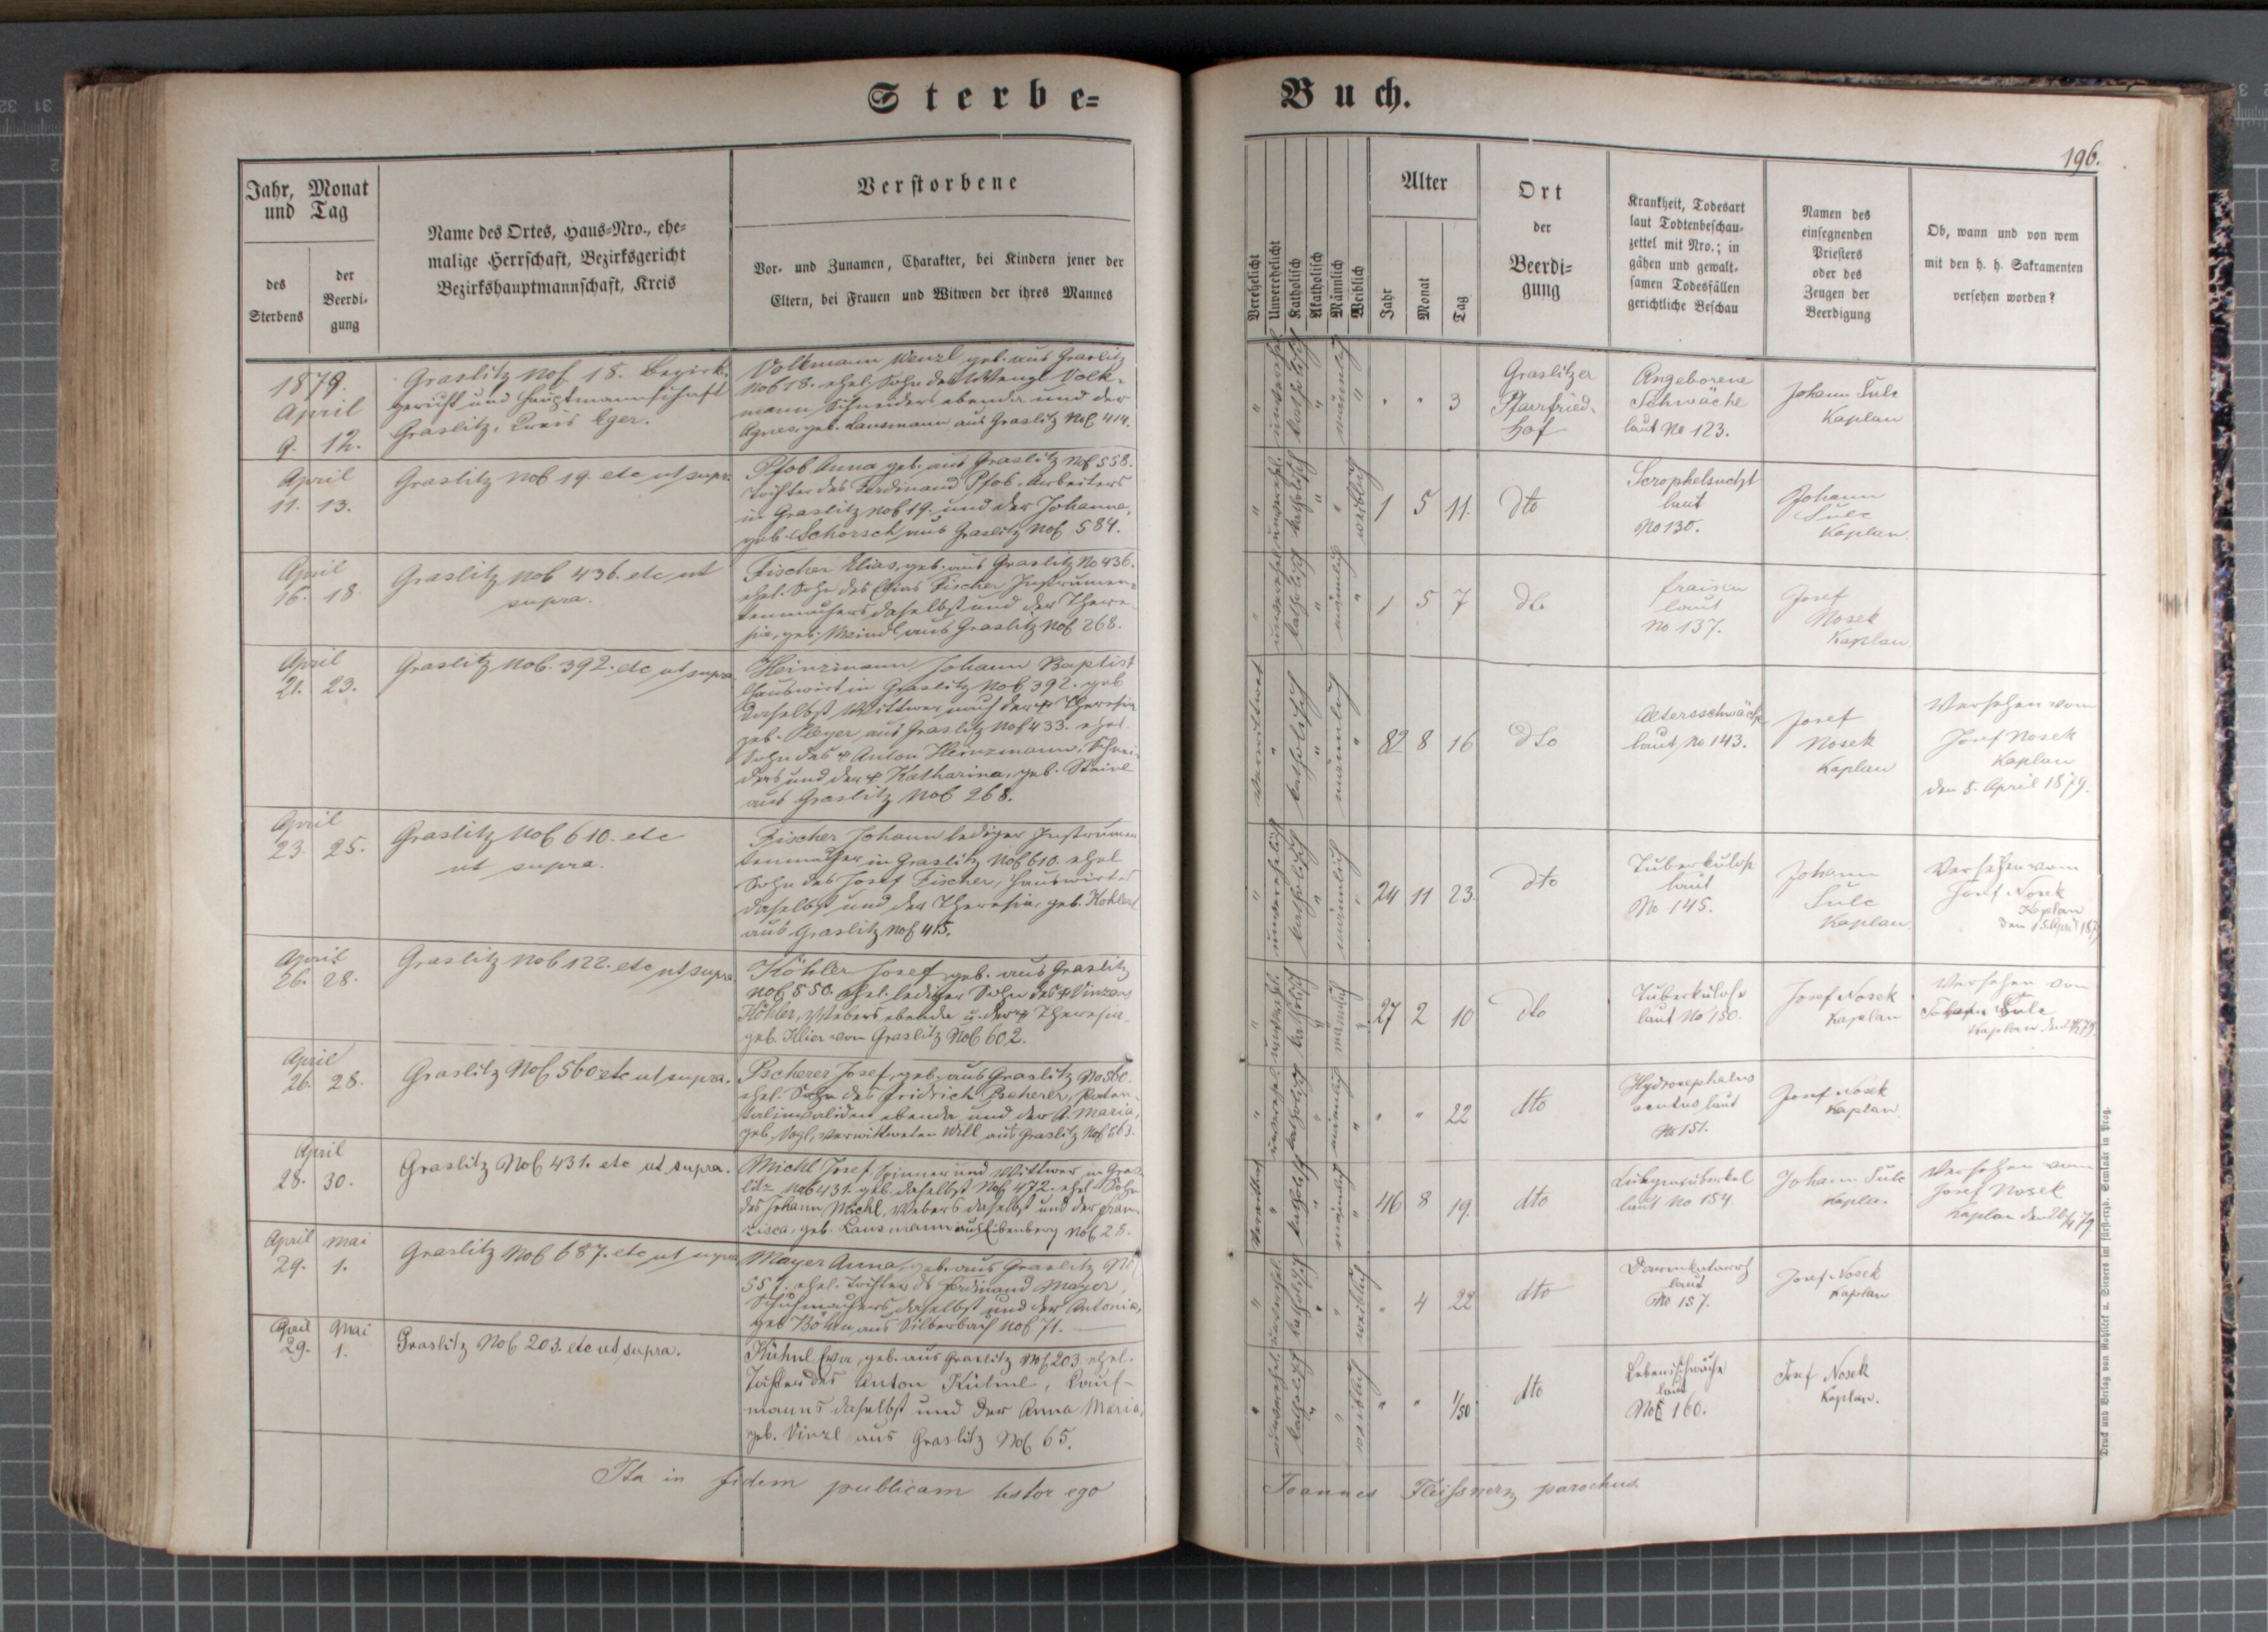 Sterbe-
Jahr, Monat
und Tag
des
Sterbens
der
Beerdi-
gung
Name des Ortes, Haus-Nro., ehe-
malige Herrschaft, Bezirksgericht
Bezirkshauptmannschaft, Kreis
Verstorbene
Vor- und Zunamen, Charakter, bei Kindern jener der
Eltern, bei Frauen und Witwen der ihres Mannes
1879.
April
9. 12.
Graslitz No 18. Bezirks-
gericht und Hauptmannschaft
Graslitz, Kreis Eger.
Volkmann Wenzl geb. aus Graslitz
No 18. ehel. Sohn des Wenzl Volk-
mann Schneiders ebenda und der
Agnes, geb. Lausmann aus Graslitz No 414.
April
11. 13.
Graslitz No 19. etc ut supra
Pfob Anna geb. aus Graslitz No 558.
Tochter des Ferdinand Pfob, Arbeiters
in Graslitz No 19. und der Johanna,
geb. Schorsch aus Graslitz No 584.
April
16. 18.
Graslitz No 436. etc ut
supra.
Fischer Elias, geb. aus Graslitz No 436.
ehel. Sohn des Elias Fischer Instrumen-
tenmachers daselbst und der There-
sia, geb. Meindl aus Graslitz No 268.
April
21. 23.
Graslitz No 392. etc ut supra
Heinzmann Johann Baptist
Hauswirt in Graslitz No 392. geb
daselbst Wittwer nach der † Theresia
geb. Pleyer aus Graslitz No 433. ehel.
Sohn des † Anton Heinzmann, Schnei-
ders und der † Katharina, geb.
aus Graslitz No 268.
April
23. 25.
Graslitz No 610. etc
ut supra.
Fischer Johann lediger Instrumen
tenmacher in Graslitz No 610. ehel
Sohn des Josef Fischer, Hauswirtes
daselbst und der Theresia, geb. Kohlert
aus Graslitz No 415.
April
26. 28.
Graslitz No 122. etc ut supra
Köhler Josef, geb. aus Graslitz
No 550. ehel. lediger Sohn des † Vinzenz
Köhler, Webers ebenda u. der † Theresia
geb. Klier von Graslitz No 602.
April
26. 28.
Graslitz No 560 etc ut supra.
Pscherer Josef, geb. aus Graslitz No 560.
ehel. Sohn des Fridrich Pscherer, Paten-
talinvaliden ebenda und der A. Maria,
geb. Vogl, verwittweten Will aus Graslitz No 563.
April
28. 30.
Graslitz No 431. etc ut supra.
Michl Josef Spinner und Wittwer in Gras
litz No 431. geb. daselbst No 472. ehel. Sohn
des Johann Michl, Webers daselbst und der Fran-
zisca, geb. Lausmann aus Eibenberg No 28.
April Mai
29. 1.
Graslitz No 687. etc ut supra
Mayer Anna, geb. aus Graslitz No
557. ehel. Tochter des Ferdinand Mayer,
Schuhmachers daselbst und der Antonia,
geb Böhm aus Silberbach No 71.
April Mai
29. 1.
Graslitz No 203. etc ut supra.
Kühnl Eva, geb. aus Graslitz No 203. ehel.
Tochter des Anton Kühnl, Kauf-
manns daselbst und der Anna Maria,
geb. Vinzl aus Graslitz No 65.
Ita in fidem publicam testor ego
Buch.
196.
Verehelicht
Unverehelicht
Katholisch
Akatholisch
Männlich
Weiblich
Alter
Jahr
Monat
Tag
Ort
der
Beerdi-
gung
Krankheit, Todesart
laut Todtenbeschau-
zettel mit Nro.; in
gähen und gewalt-
samen Todesfällen
gerichtliche Beschau
Namen des
einsegnenden
Priesters
oder des
Zeugen der
Beerdigung
Ob, wann und von wem
mit den h. h. Sakramenten
versehen worden?
" unverehel. katholisch " männlich " " " 3
Graslitzer
Pfarrfried-
hof
Angeborene
Schwäche
laut No 123.
Johann Sulc
Kaplan
" unverehel. katholisch " " weiblich 1 5 11.
dto
Scrophelsucht
laut
No 130.
Johann
Sulc
Kaplan.
" unverehel. katholisch " männlich " 1 5 7
dto
Fraisen
laut
No 137.
Josef
Nosek
Kaplan.
verwittwet " katholisch " männlich " 82 8 16
dto
Altersschwäche
laut No 143.
Josef
Nosek
Kaplan
Versehen vom
Josef Nosek
Kaplan
den 5. April 1879.
" unverehelicht katholisch " männlich " 24 11 23.
dto
Tuberkulose
laut
No 145.
Johann
Sulc
Kaplan.
Versehen vom
Josef Nosek
Kaplan
den 15. April 1879
" unverehel. katholisch " männlich " 27 2 10
dto
Tuberkulose
laut No 150.
Josef Nosek
Kaplan
Versehen von
Johann Sulc
Kaplan
" unverehel. katholisch " männlich " " " 22
dto
Hydrocephalus
acutus laut
No 151.
Josef Nosek
Kaplan.
Verwittwet " katholisch " männlich " 46 8 19.
dto
Lungentuberkel
laut No 154.
Johann Sulc
Kaplan.
Versehen vom
Josef Nosek
Kaplan den 26/4 79
" unverehel. katholisch " " weiblich " 4 22
dto
Darmkatarrh
laut
No 157.
Josef Nosek
Kaplan
" unverehel. katholisch " " weiblich " " 1/50
dto
Lebensschwäche
laut
No 160.
Josef Nosek
Kaplan.
Joannes Fleissner parochus.
Druck und Verlag von Rohliček u. Sievers im fürst-erzb. Seminär in Prag.